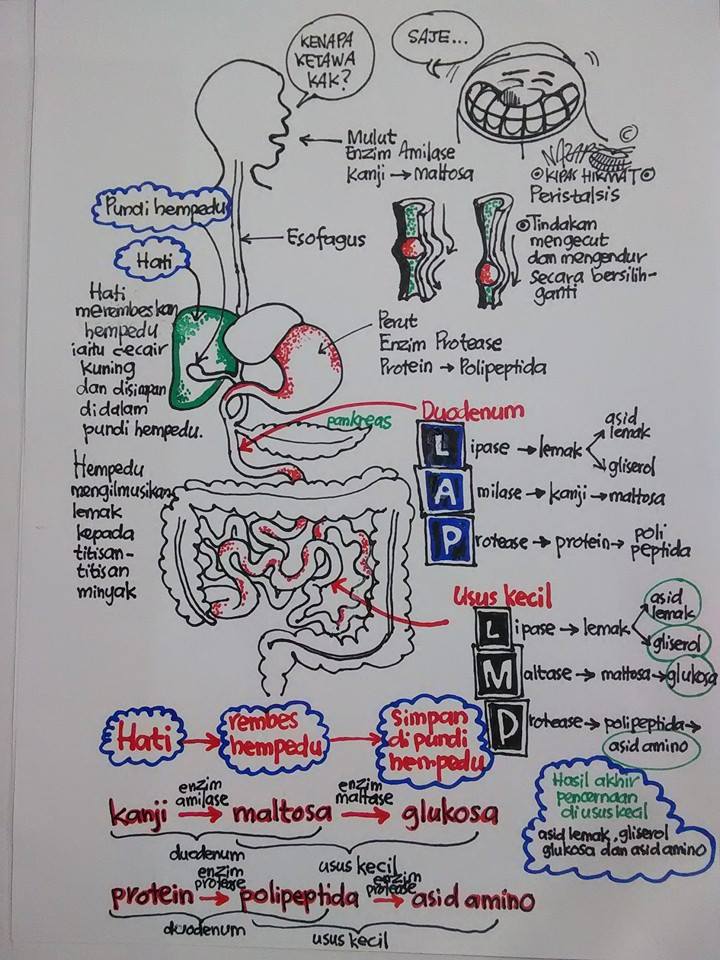 KENAPA
KETAWA
KAK?
SAJE...
Mulut
Enzim Amilase
Kanji → maltosa
©
KIPAS HIKMAT
Peristalsis
Tindakan
mengecut
dan mengendur
secara bersilih-
ganti
Pundi hempedu
Hati
Esofagus
Hati
merembeskan
hempedu
iaitu cecair
kuning
dan disimpan
didalam
pundi hempedu.
Perut
Enzim Protease
Protein → Polipeptida
pankreas
Duodenum
Lipase → lemak
asid
lemak
gliserol
Amilase → kanji → maltosa
Protease → protein → poli
peptida
Hempedu
mengilmusikan
lemak
kepada
titisan-
titisan
minyak
Usus kecil
Lipase → lemak
asid
lemak
gliserol
Maltase → maltosa → glukosa
Protease → polipeptida →
asid amino
Hati → rembes
hempedu → simpan
di pundi
hempedu
kanji enzim
amilase → maltosa enzim
maltase → glukosa
duodenum
usus kecil
protein enzim
protease → polipeptida enzim
protease → asid amino
duodenum
usus kecil
Hasil akhir
pencernaan
di usus kecil
asid lemak, gliserol
glukosa dan asid amino